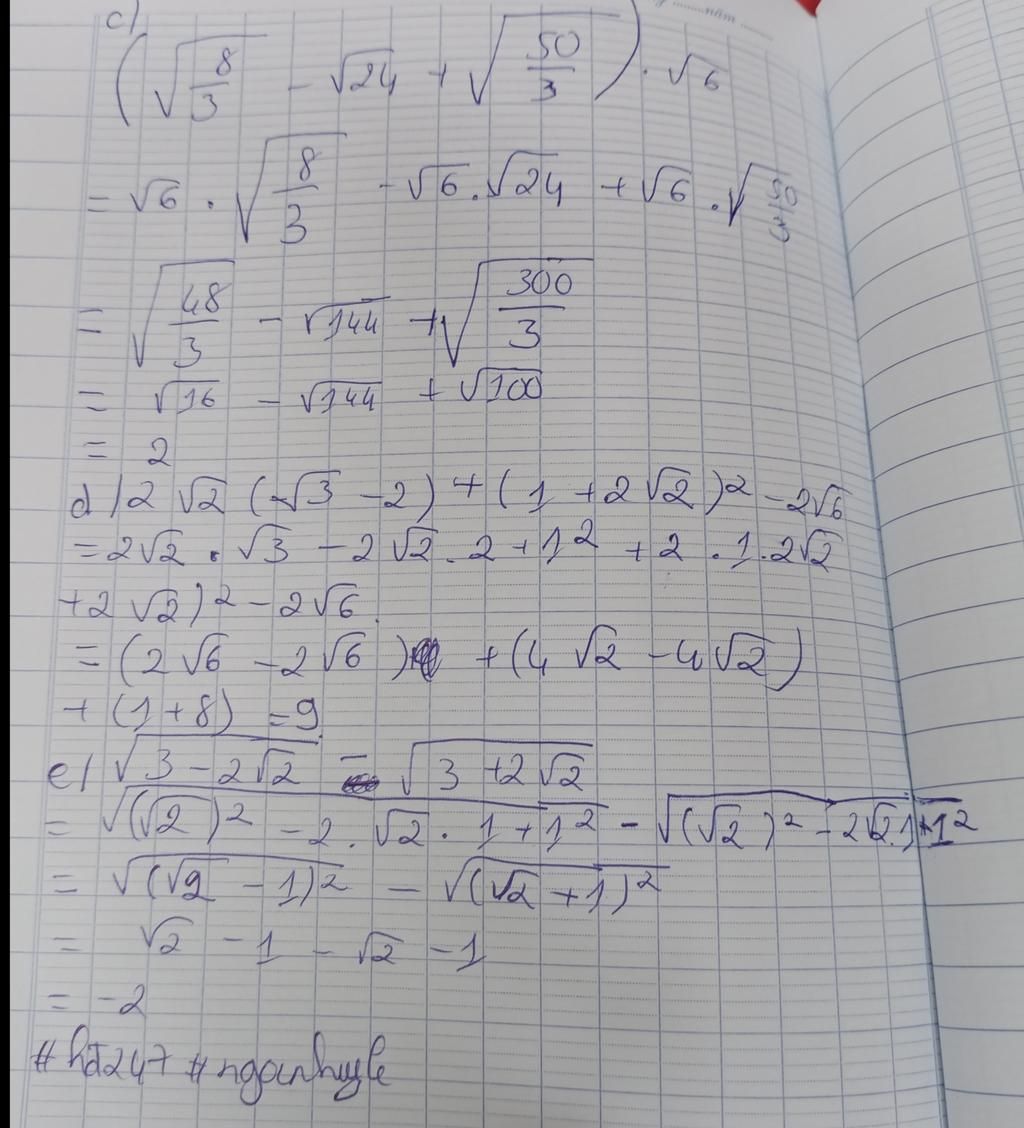 c)
(√(8/3) - √24 + √(50/3)) . √6
= √6 . √(8/3) - √6 . √24 + √6 . √(50/3)
= √(48/3) - √144 + √(300/3)
= √16 - √144 + √100
= 2
d) 2√2 (√3 - 2) + (1 + 2√2)² - 2√6
= 2√2 . √3 - 2√2 . 2 + 1² + 2 . 1 . 2√2
+ 2√2)² - 2√6
= (2√6 - 2√6) + (4√2 - 4√2)
+ (1 + 8) = 9
e) √(3 - 2√2) - √(3 + 2√2)
= √((√2)² - 2 . √2 . 1 + 1²) - √((√2)² - 2√2 . 1 + 1²)
= √((√2 - 1)²) - √((√2 + 1)²)
= √2 - 1 - √2 - 1
= -2